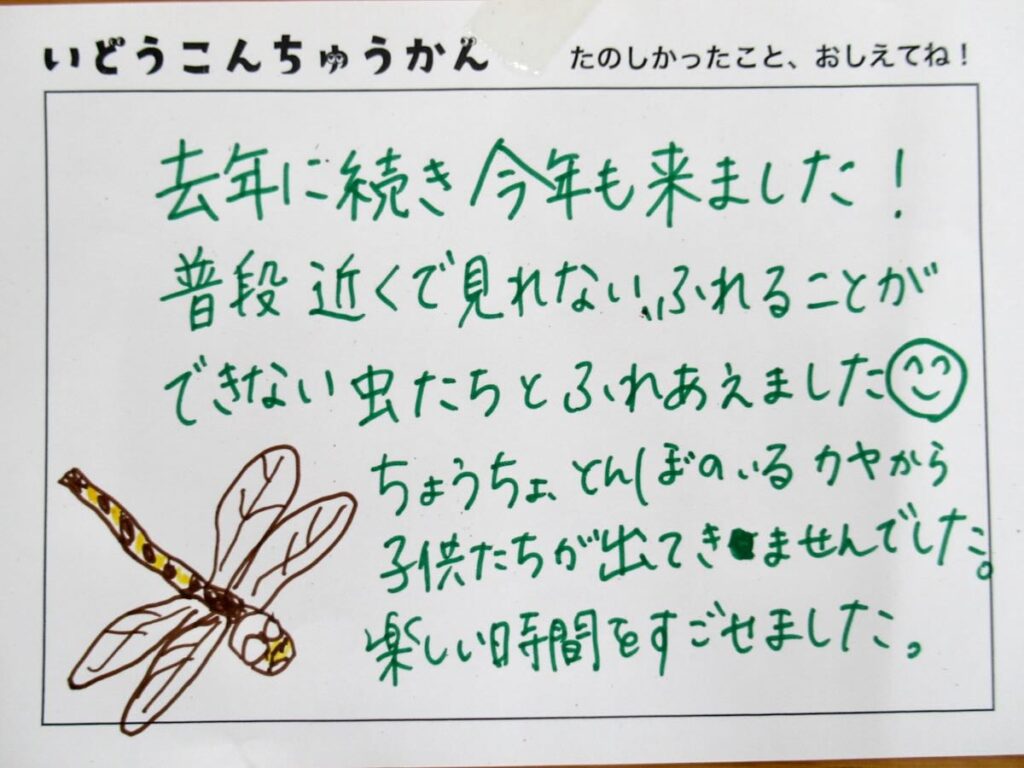 いどうこんちゅうかん
たのしかったこと、おしえてね！
去年に続き今年も来ました！
普段近くで見れない、ふれることが
できない虫たちとふれあえました
ちょうちょ、とんぼのいるカヤから
子供たちが出てきませんでした。
楽しい時間をすごせました。